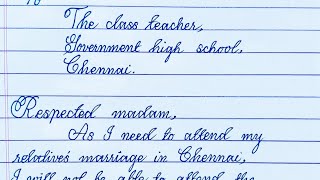 The class teacher,
Government high school,
Chennai.
Respected madam,
As I need to attend my
relative's marriage in Chennai,
I will not be able to attend the